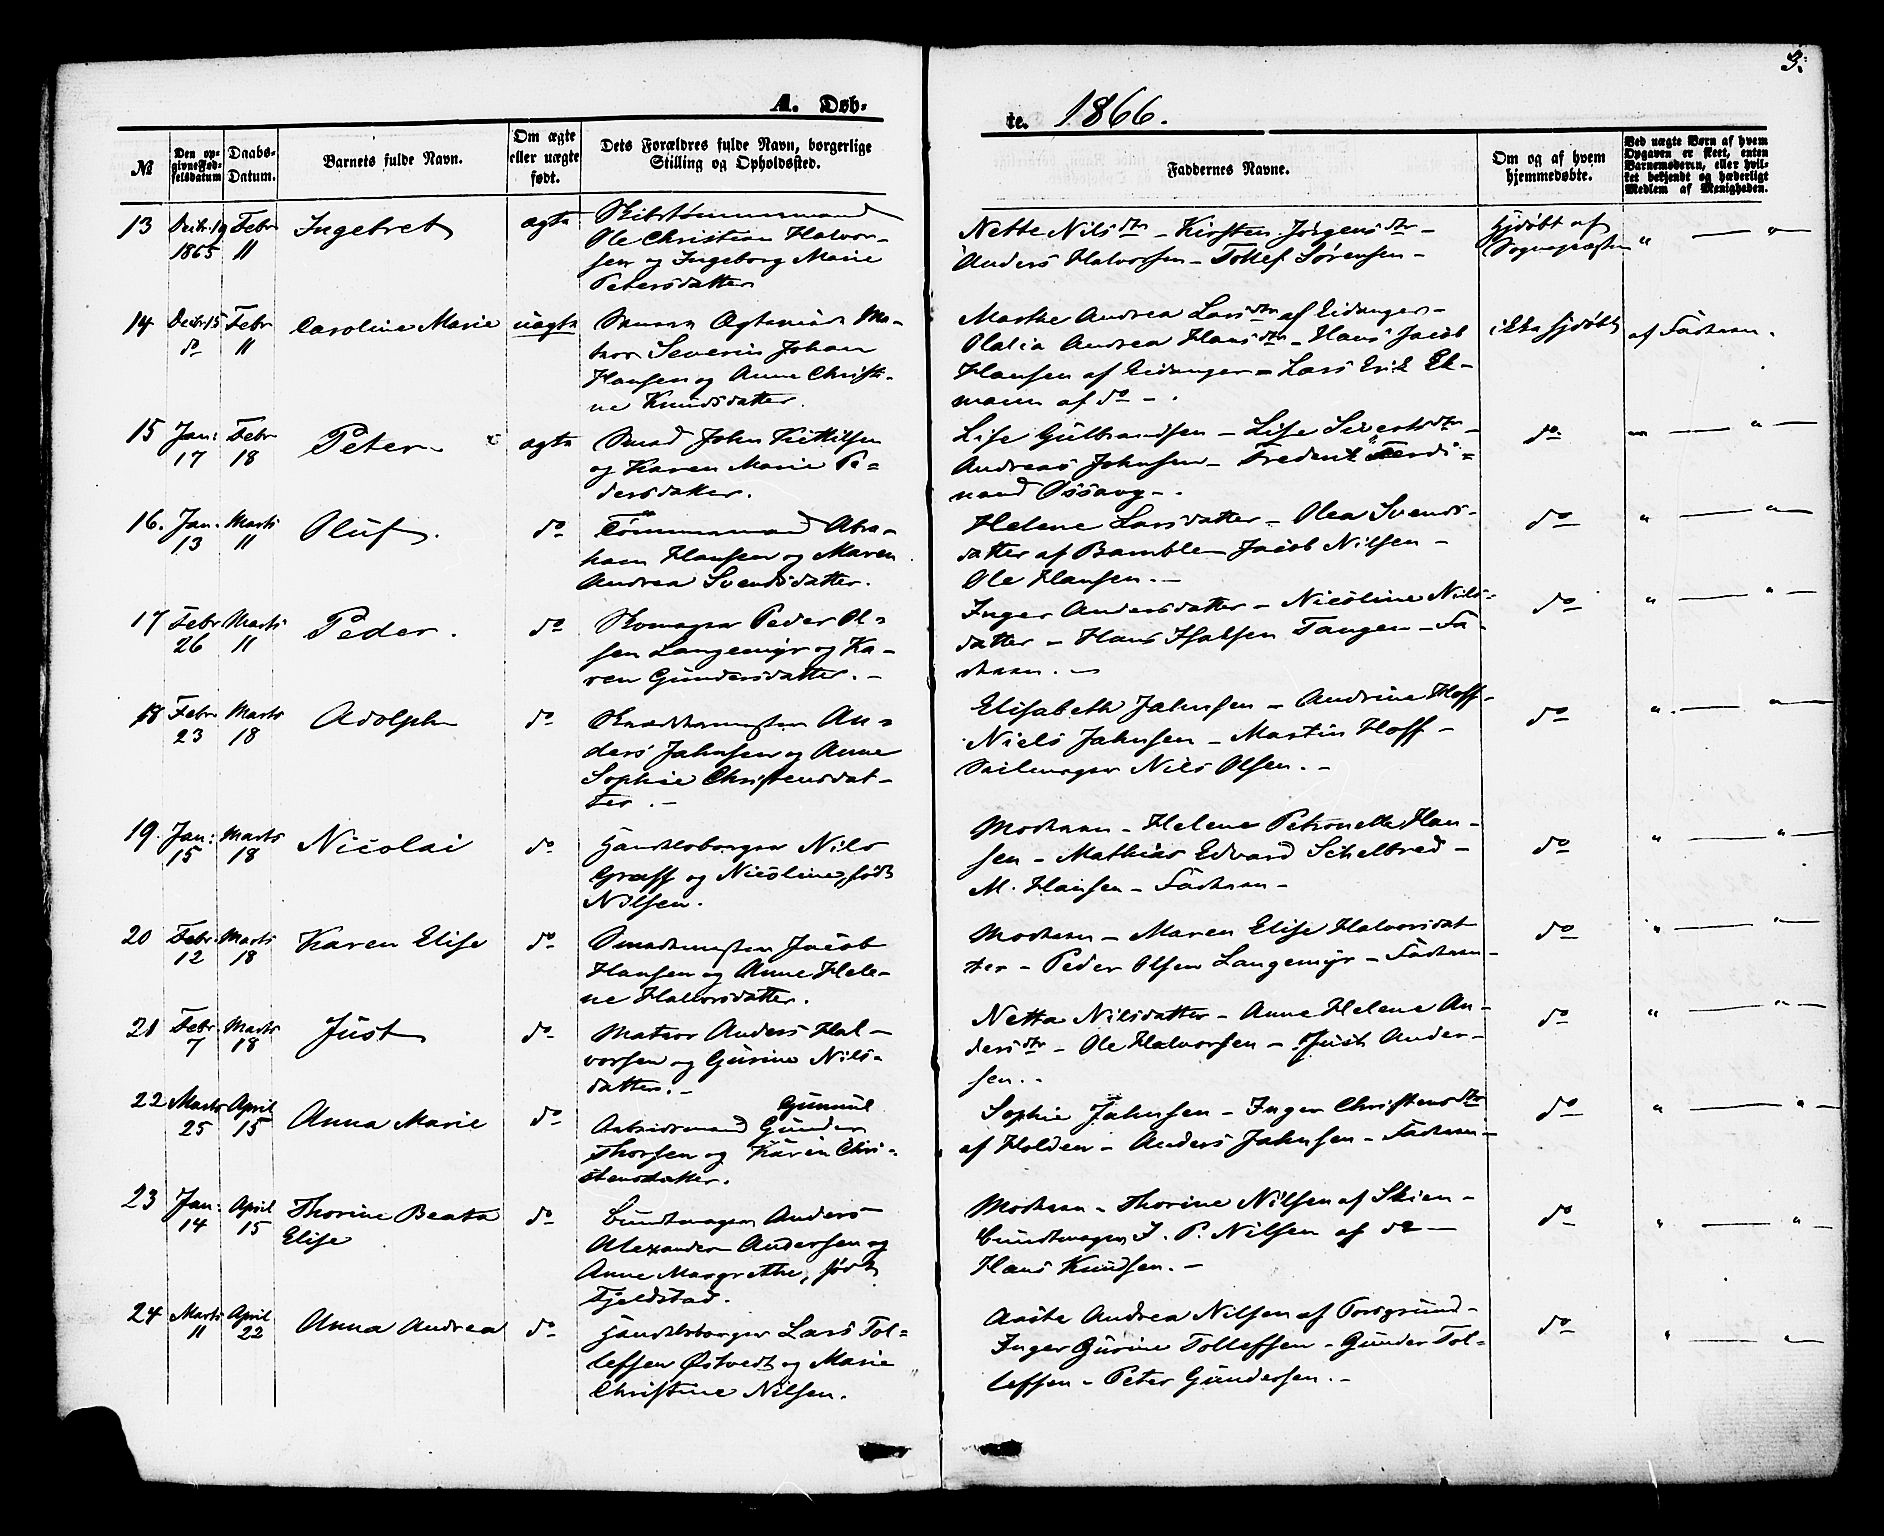 3.
A. Døb-
te. 1866.
№
Den op-
givne Fød-
selsdatum
Daabs-
Datum.
Barnets fulde Navn.
Om ægte
eller uægte
født.
Dets Forældres fulde Navn, borgerlige
Stilling og Opholdssted.
Faddernes Navne.
Om og af hvem
hjemmedøbte.
Ved uægte Børn af hvem
Opgaven er skeet, enten
Barnemoderen, eller hvil-
ket bekjendt og hæderligt
Medlem af Menigheden.
13 Decbr. 19 1865 Febr 11 Ingebret ægte
Skibstømmermand
Ole Christian Halvor-
sen og Ingeborg Marie
Petersdatter
Nette Nilsdtr – Kirsten Jørgensdtr –
Anders Halvorsen – Tollef Sørensen –
Hjdøbt af
Sognepræsten " — "
14 Decbr. 15 do Febr 11 Caroline Marie uægte
Ma-
Severin Johan
Hansen og Anne Christi-
ne Knudsdatter.
Marthe Andrea Larsdtr af Eidanger –
Olalia Andrea Hansdtr – Hans Jacob
Hansen af Eidanger – Lars Erik Ek-
mann af do – .
ikke hjdøbt
af Faderen.
15 Jan: 17 Febr 18 Peter ægte
Smed John Kittilsen
og Karen Marie Pe-
dersdatter.
Lise Gulbrandsen – Lise Sivertsdtr –
Andreas Johnsen – Frederik Ferdi-
nand Ossavg – .
do " — " —
16. Jan. 13 Marts 11 Oluf. do
Tømmermand Abra-
ham Hansen og Maren
Andrea Svendsdatter.
Helene Larsdatter – Olea Svends-
datter af Bamble – Jacob Nilsen –
Ole Hansen. –
do " — " —
17 Febr 26 Marts 11 Peder. do
Skomager Peder Ol-
sen Langemyr og Ka-
ren Gundersdatter. –
Inger Andersdatter – Nicoline Nils-
datter – Hans Halsen Tangen – Fa-
deren. –
do " — " —
18 Febr 23 Marts 18 Adolph do
Skræddermester An-
ders Jahnsen og Anne
Sophie Christensdat-
ter. –
Elisabeth Jahnsen – Andrine Hoff –
Niels Jahnsen – Martin Hoff –
Seilmager Nils Olsen. –
do " — " —
19. Jan: 15 Marts 18 Nicolai do
Handelsborger Nils
Græff og Nicoline, født
Nilsen.
Moderen – Helene Petronelle Han-
sen – Mathias Edvard Schelbred –
M. Hansen – Faderen –
do " — " —
20 Febr. 12 Marts 18 Karen Elise do
Smedmester Jacob
Hansen og Anne Hele-
ne Halvorsdatter.
Moderen – Maren Elise Halvorsdat
ter – Peder Olsen Langemyr – Faderen –
do " — " —
21 Febr. 7 Marts 18 Just do
Matros Anders Hal-
vorsen og Gurine Nils-
datter. –
Netta Nilsdatter – Anne Helene An-
dersdtr – Ole Halvorsen – Just Ander-
sen. –
do " — " —
22 Marts 25 April 15 Anna Marie do
Gunnul
Arbeidsmand Gunder
Thorsen og Karin Chri-
stensdatter.
Sophie Jahnsen – Inger Christensdtr
af Holden – Anders Jahnsen – Faderen –
do " — " —
23 Jan. 14 April 15 Thorine Beata
Elise do
Bundtmager Anders
Alexander Andersen og
Anne Margrethe, født
Fjeldstad.
Moderen – Thorine Nilsen af Skien –
Bundtmager I. P. Nilsen af do –
Hans Knudsen. –
do " — " —
24 Marts 11 April 22 Anna Andrea do
Handelsborger Lars Tol-
lefsen Østvedt og Marie
Christine Nilsen.
Aaste Andrea Nilsen af Porsgrund –
Inger Gurine Tollefsen – Gunder Tol-
lefsen – Peter Gundersen. –
do " — " —